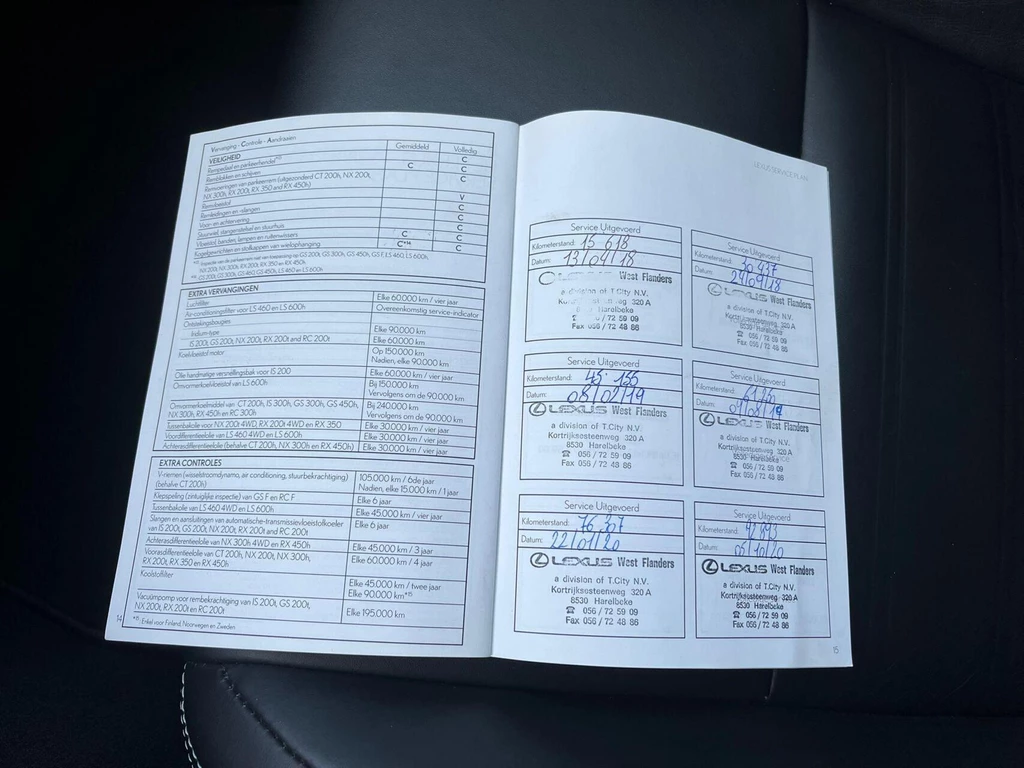 Vervanging - Controle - Aandraaien
Gemiddeld Volledig
VEILIGHEID
Rempedaal en parkeerhendel C
Remblokken en schijven C C
Remvoeringen van parkeerrem (uitgezonderd CT 200h, NX 200t, C
NX 300h, RX 200t, RX 350 and RX 450h)
Remvloeistof V
Remleidingen en -slangen C
Voor- en achtervering C
Stuurwiel, stangenstelsel en stuurhuis C
Vloeistof, banden, lampen en ruitenwissers C C
Kogelgewrichten en stofkappen van wielophanging C*14 C
NX 200t, NX 300h, RX 200t, RX 350 en RX 450h
EXTRA VERVANGINGEN
Luchtfilter Elke 60.000 km / vier jaar
Air-conditioningfilter voor LS 460 en LS 600h Overeenkomstig service-indicator
Ontstekingsbougies
Iridium-type Elke 90.000 km
IS 200t, GS 200t, NX 200t, RX 200t and RC 200t Elke 60.000 km
Koelvloeistof motor Op 150.000 km
Nadien, elke 90.000 km
Olie handmatige versnellingsbak voor IS 200 Elke 60.000 km / vier jaar
Omvormerkoelvloeistof van LS 600h Bij 150.000 km
Vervolgens om de 90.000 km
Omvormerkoelmiddel van CT 200h, IS 300h, GS 300h, GS 450h, Bij 240.000 km
NX 300h, RX 450h en RC 300h Vervolgens om de 90.000 km
Tussenbakolie voor NX 200t 4WD, RX 200t 4WD en RX 350 Elke 30.000 km / vier jaar
Voordifferentieelolie van LS 460 4WD en LS 600h Elke 30.000 km / vier jaar
Achterasdifferentieelolie (behalve CT 200h, NX 300h en RX 450h) Elke 30.000 km / vier jaar
EXTRA CONTROLES
V-riemen (wisselstroomdynamo, air conditioning, stuurbekrachtiging) 105.000 km / 6de jaar
(behalve CT 200h) Nadien, elke 15.000 km / 1 jaar
Klepspeling (zintuiglijke inspectie) van GS F en RC F Elke 6 jaar
Tussenbakolie van LS 460 4WD en LS 600h Elke 45.000 km / vier jaar
Slangen en aansluitingen van automatische-transmissievloeistofkoeler Elke 6 jaar
van IS 200t, GS 200t, NX 200t, RX 200t and RC 200t
Achterasdifferentieelolie van NX 300h 4WD en RX 450h Elke 45.000 km / 3 jaar
Voorasdifferentieelolie van CT 200h, NX 200t, NX 300h, Elke 60.000 km / 4 jaar
RX 200t, RX 350 en RX 450h
Koolstoffilter Elke 45.000 km / twee jaar
Elke 90.000 km*15
Vacuümpomp voor rembekrachtiging van IS 200t, GS 200t, Elke 195.000 km
NX 200t, RX 200t en RC 200t
*15 Enkel voor Finland, Noorwegen en Zweden
14
LEXUS SERVICE PLAN
Service Uitgevoerd
Kilometerstand: 15 618
Datum: 13/04/18
West Flanders
a division of T.City N.V.
320 A
Harelbeke
/ 72 59 09
Fax 056 / 72 48 86
Service Uitgevoerd
Kilometerstand: 30 937
Datum: 24/09/18
LEXUS West Flanders
a division of T.City N.V.
Kortrijksesteenweg 320 A
8530 Harelbeke
☎ 056 / 72 59 09
Fax 056 / 72 48 86
Service Uitgevoerd
Kilometerstand: 45 155
Datum: 08/02/19
LEXUS West Flanders
a division of T.City N.V.
Kortrijksesteenweg 320 A
8530 Harelbeke
☎ 056 / 72 59 09
Fax 056 / 72 48 86
Service Uitgevoerd
Kilometerstand:
Datum:
LEXUS West Flanders
a division of T.City N.V.
Kortrijksesteenweg 320 A
8530 Harelbeke
☎ 056 / 72 59 09
Fax 056 / 72 48 86
Service Uitgevoerd
Kilometerstand: 76 307
Datum: 22/01/20
LEXUS West Flanders
a division of T.City N.V.
Kortrijksesteenweg 320 A
8530 Harelbeke
☎ 056 / 72 59 09
Fax 056 / 72 48 86
Service Uitgevoerd
Kilometerstand: 92 893
Datum: 05/10/20
LEXUS West Flanders
a division of T.City N.V.
Kortrijksesteenweg 320 A
8530 Harelbeke
☎ 056 / 72 59 09
Fax 056 / 72 48 86
15